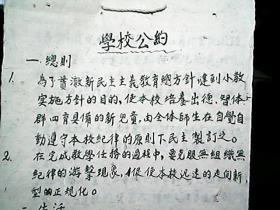 學校公約
一. 總則
1. 為了貫澈新民主主義教育總方針達到小教
實施方針的目的，使本校培養出德、智、体、
群四育具備的新兒童，由全体師生在自覺自
動遵守本校紀律的原則下民主製訂之。
2. 在完成教學任務的過程中，要克服無組織無
紀律的游擊現象，使本校迅速的走向新
型的正規化。
二 生活